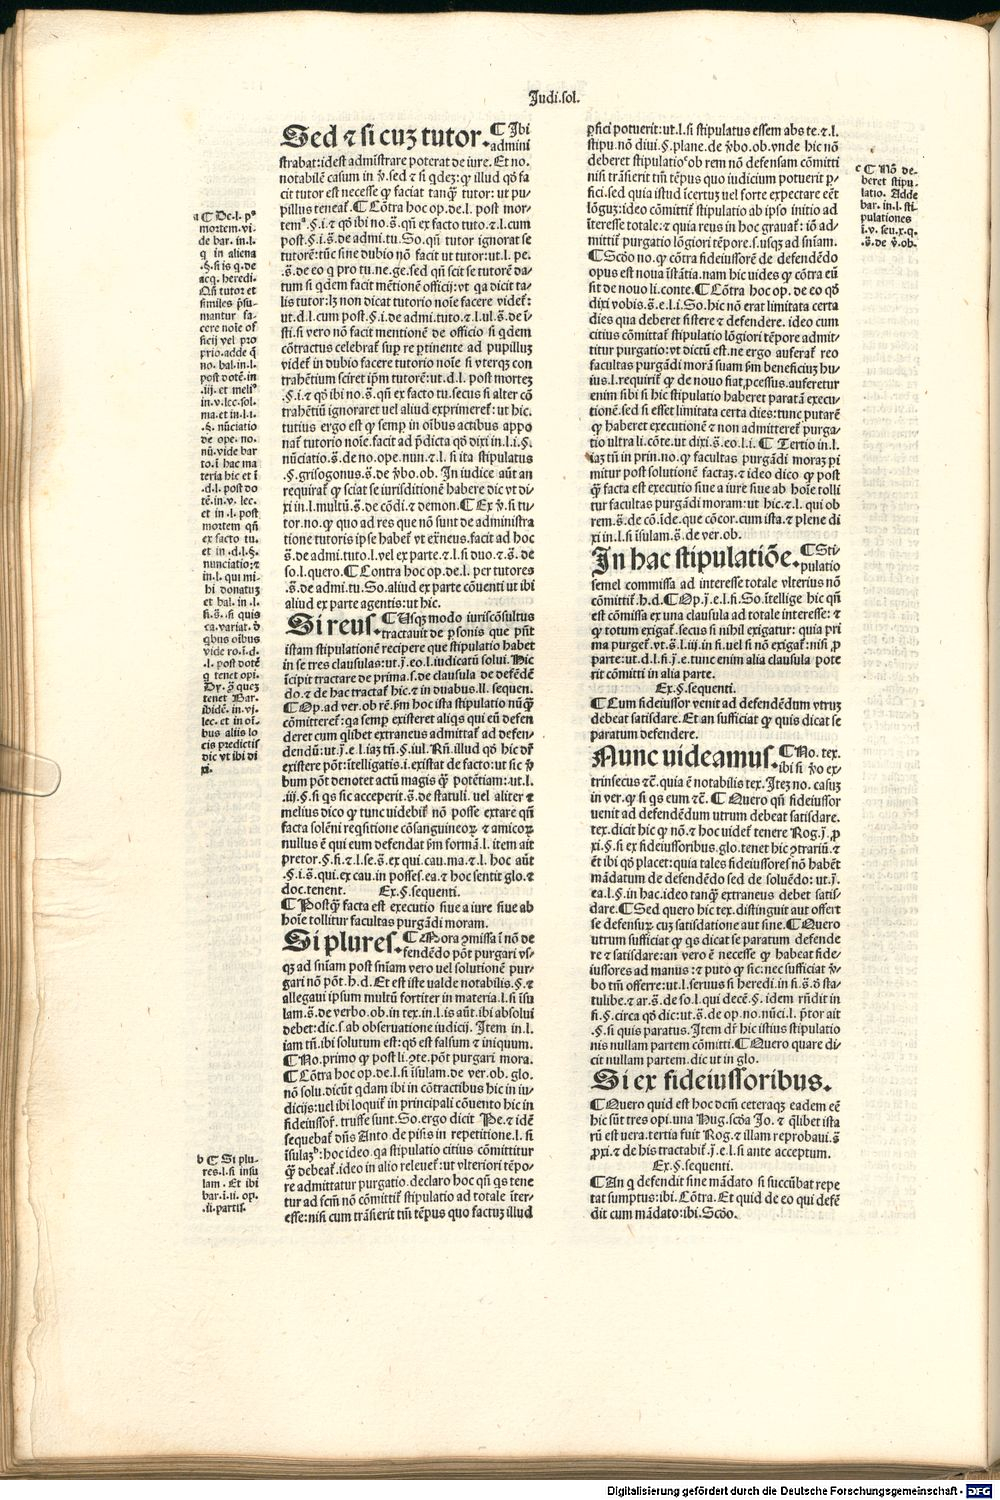 Judi.sol.
Sed ⁊ si cuȝ tutor. ¶ Ibi
admini
strabat:idest admīstrare poterat de iure. Et no.
notabilē casum in ṽ.sed ⁊ si q̄deȝ:ꝙ illud qḋ fa
cit tutor est necesse ꝙ faciat tanꝗ̄ tutor: ut pu-
pillus teneat̄. ¶ Cōtra hoc op.de.l. post mor-
tem.§.i.⁊ qḋ ibi no.s̄.qn̄ ex facto tuto.⁊ l.cum
post.§.i.s̄.de admi.tu.So.qn̄ tutor ignorat se
tutorē:tūc sine dubio nō facit ut tutor:ut.l. pe.
.s̄.de eo q pro tu.ne.ge.sed qn̄ scit se tutorē da-
tum si q̄dem facit mētionē officij: vt qa dicit ta-
lis tutor: lȝ non dicat tutorio noīe facere videt̄:
ut.d.l.cum post.§.i.de admi.tuto.⁊ l.ul.s̄. de ī-
sti.si vero nō facit mentionē de officio si q̄dem
cōtractus celebrat̄ suꝑ re ꝑtinente ad pupilluȝ
videt̄ in dubio facere tutorio noīe si vterqȝ con
trahētium sciret ip̄m tutorē:ut.d.l. post morteȝ
.§.i.⁊ qḋ ibi no.s̄.qn̄ ex facto tu.secus si alter cō
trahētiū ignoraret vel aliud exprimeret̄: ut hic.
tutius ergo est ꝙ semꝑ in oībus actibus appo
nat̄ tutorio noīe.facit ad p̄dicta qḋ dixi in.l.i.§.
nūciatio.s̄.de no.ope.nun.⁊ l. si ita stipulatus
.§.grisogonus.s̄.de ṽbo.ob. In iudice aūt an
requirat̄ ꝙ sciat se iurisditionē habere dic vt di-
xi in.l.multū.s̄.de cōdi.⁊ demon. ¶ Ex ṽ.si tu-
tor.no.ꝙ quo ad res que nō sunt de administra
tione tutoris ipse habet̄ vt ex̄neus.facit ad hoc
s̄.de admi.tuto.l.vel ex parte.⁊ l.si duo.⁊ s̄. de
so.l.quero. ¶ Contra hoc op.de.l. per tutores
.s̄.de admi.tu.So.aliud ex parte cōuenti ut ibi
aliud ex parte agentis:ut hic.
Si reus. ¶ Usqȝ modo iuriscōsultus
tractauit de ꝑsonis que pn̄t
istam stipulationē recipere que stipulatio habet
in se tres clausulas:ut.j̄.eo.l.iudicatū solui. Hic
īcipit tractare de prima.s.de clausula de defēdē
do.⁊ de hac tractat̄ hic.⁊ in duabus.ll. sequen.
¶ Op.ad ver.ob rē.s̄m hoc ista stipulatio nūꝗ̄
cōmitteret̄:qa semꝑ existeret aliqs qui eū defen
deret cum qlibet extraneus admittat̄ ad defen-
dendū:ut.j̄.e.l.iaȝ tn̄.§.iul. Rn̄.illud qḋ hic dr̄
existere pōt:itelligatis.i.existat de facto:ut sic ṽ
bum pōt denotet actū magis ꝙ potētiam: ut.l.
.iij.§.si qs sic acceperit.s̄.de statuli. uel aliter ⁊
melius dico ꝙ tunc uidebit̄ nō posse extare qn̄
facta solēni reqsitione cōsanguineoꝝ ⁊ amicoꝝ
nullus ē qui eum defendat s̄m formā.l. item ait
pretor.§.fi.⁊ l.se.s̄.ex qui.cau.ma.⁊ l. hoc aūt
.§.i.s̄.qui.ex cau.in posses.ea.⁊ hoc sentit glo.⁊
doc.tenent. Ex.§.sequenti.
¶ Postꝗ̄ facta est executio siue a iure siue ab
hoīe tollitur facultas purgādi moram.
Si plures. ¶ Mora ꝯmissa ī nō de
fendēdo pōt purgari vs-
qȝ ad sn̄iam post sn̄iam vero uel solutionē pur-
gari nō pōt.h.d. Et est iste ualde notabilis.§.⁊
allegaui ipsum multū fortiter in materia.l.si īsu
lam.s̄.de verbo.ob.in tex.in.l.is aūt.ibi absolui
debet:dic.s.ab obseruatione iudicij. Item in.l.
iam tn̄.ibi solutum est:qḋ est falsum ⁊ iniquum.
¶ No.primo ꝙ post li.ꝯte.pōt purgari mora.
¶ Cōtra hoc op.de.l.si īsulam.de ver.ob. glo.
nō solu.dicūt qdam ibi in cōtractibus hic in iu-
dicijs:uel ibi loquit̄ in principali cōuento hic in
fideiussor̄. truffe sunt.So.ergo dicit Pe.⁊ idē
sequebat̄ dn̄s Anto de pisis in repetitione.l. si
īsulaȝ:hoc ideo.qa stipulatio citius cōmittitur
ꝗ̄ debeat̄.ideo in alio releuet̄:ut vlteriori tēpo-
re admittatur purgatio.declaro hoc qn̄ qs tene
tur ad fcm̄ nō cōmittit̄ stipulatio ad totale īter-
esse:nisi cum trāsierit tm̄ tēpus quo factuȝ illud
ꝑfici potuerit:ut.l.si stipulatus essem abs te.⁊ l.
stipu.nō diui.§.plane.de ṽbo.ob.vnde hic nō
deberet stipulatio ob rem nō defensam cōmitti
nisi trāsierit tm̄ tēpus quo iudicium potuerit ꝑ-
fici.sed quia istud īcertuȝ uel forte expectare eēt
lōguȝ:ideo cōmittit̄ stipulatio ab ipso initio ad
īteresse totale:⁊ quia reus in hoc grauat̄: iō ad-
mittit̄ purgatio lōgiori tēpore.s.usqȝ ad sn̄iam.
¶ Scḋo no.ꝙ cōtra fideiussorē de defendēdo
opus est noua īstātia.nam hic uides ꝙ cōtra eū
fit de nouo li.conte. ¶ Cōtra hoc op. de eo qḋ
dixi vobis.s̄.e.l.i.So.hic nō erat limitata certa
dies qua deberet sistere ⁊ defendere. ideo cum
citius cōmittat̄ stipulatio lōgiori tēpore admit-
titur purgatio:vt dictū est.ne ergo auferat̄ reo
facultas purgādi morā suam s̄m beneficiuȝ hu-
ius.l.requirit̄ ꝙ de nouo fiat ꝓcessus.auferetur
enim sibi si hic stipulatio haberet paratā execu-
tionē.sed si esset limitata certa dies:tunc putarē
ꝙ haberet executionē ⁊ non admitteret̄ purga-
tio ultra li.cōte.ut dixi.s̄.eo.l.i. ¶ Tertio in.l.
iaȝ tn̄ in prin.no.ꝙ facultas purgādi moraȝ pi
mitur post solutionē factaȝ.⁊ ideo dico ꝙ post
ꝗ̄ facta est executio siue a iure siue ab hoīe tolli
tur facultas purgādi moram: ut hic.⁊ l. qui ob
rem.s̄.de cō.ide.que cōcor.cum ista.⁊ plene di
xi in.l.si īsulam.s̄.de ver.ob.
In hac stipulatiōe. ¶ Sti-
pulatio
semel commissa ad interesse totale vlterius nō
cōmittit̄.h.d. ¶ Op.j̄.e.l.fi.So.ītellige hic qn̄
est cōmissa ex una clausula ad totale interesse: ⁊
ꝙ totum exigat̄.secus si nihil exigatur: quia pri
ma purget̄.vt.s̄.l.iij.in fi.uel si nō exigat̄:nisi ꝓ
parte:ut.d.l.fi.j̄.e.tunc enim alia clausula pote
rit cōmitti in alia parte.
Ex.§.sequenti.
¶ Cum fideiussor venit ad defendēdum vtruȝ
debeat satisdare.Et an sufficiat ꝙ quis dicat se
paratum defendere.
Nunc uideamus. ¶ No. tex.
ibi si ṽo ex-
trinsecus ⁊c̄.quia ē notabilis tex.Iteȝ no. casuȝ
in ver.ꝙ si qs eum ⁊c̄. ¶ Quero qn̄ fideiussor
uenit ad defendēdum utrum debeat satisdare.
tex.dicit hic ꝙ nō.⁊ hoc uidet̄ tenere Rog.j̄.ꝓ
xi.§.si ex fideiussoribus.glo.tenet hic ꝯtrariū.⁊
ēt ibi qḋ placet:quia tales fideiussores nō habēt
mādatum de defendēdo sed de soluēdo: ut.j̄.
ea.l.§.in hac.ideo tanꝗ̄ extraneus debet satis-
dare. ¶ Sed quero hic tex.distinguit aut offert
se defensuꝝ cuȝ satisdatione aut sine. ¶ Quero
utrum sufficiat ꝙ qs dicat se paratum defende
re ⁊ satisdare:an vero ē necesse ꝙ habeat fide-
iussores ad manus:⁊ puto ꝙ sic:nec sufficiat ṽ-
bo tm̄ offerre:ut.l.seruus si heredi.in fi.s̄.de sta-
tulibe.⁊ ar.s̄.de so.l.qui decē.§.idem rn̄dit in
fi.§.circa qḋ dic:ut.s̄.de op.no.nūci.l. p̄tor ait
.§.si quis paratus. Item dr̄ hic istius stipulatio
nis nullam partem cōmitti. ¶ Quero quare di-
cit nullam partem.dic ut in glo.
Si ex fideiussoribus.
¶ Quero quid est hoc dcm̄ ceteraqȝ eadem eē
hic sūt tres opi.una Hug.scḋa Jo.⁊ qlibet ista
rū est uera.tertia fuit Rog.⁊ illam reprobaui.s̄
ꝓxi.⁊ de his tractabit̄.j̄.e.l.si ante acceptum.
Ex.§.sequenti.
¶ An q defendit sine mādato si succūbat repe
tat sumptus:ibi.Cōtra.Et quid de eo qui defē
dit cum mādato:ibi.Scḋo.
a ¶ De.l. p9
mortem.vi-
de bar. in.l.
q in aliena
.§.si is q.de
acq. heredi.
Qn̄ tutor et
similes p̄su-
mantur fa-
cere noīe of
ficij vel pro
prio.adde q̄
no. bal.in.l.
post dotē.in
.iij. et meli9
in.v.lec.sol.
ma.et in.l.i.
.§. nūciatio
de ope. no.
nū.vide bar
to.ī hac ma
teria hic et ī
.d.l. post do
tē.in.v. lec.
et in .l. post
mortem qn̄
ex facto tu.
et in .d.l.§.
nunciatio:⁊
in.l. qui mi-
hi donatuȝ
et bal. in .l.
fi.s̄. .si quis
ca.variat. d̄
qbus oībus
vide ro.ī.d.
.l. post dotē
q tenet opi.
Dy. ꝯ̄ quez
tenet Bar.
ibidē. in.vj.
lec. et in oī-
bus aliis lo
cis predictis
dic vt ibi di
xi.
b ¶ Si plu-
res.l.si insu
lam . Et ibi
bar.ī.ii. op.
.ii.partis.
c ¶ Nō de-
beret stipu-
latio. Adde
bar. in.l. sti-
pulationes
ī.v. seu.x.q.
.s̄.de ṽ.ob.
Digitalisierung gefördert durch die Deutsche Forschungsgemeinschaft - DFG